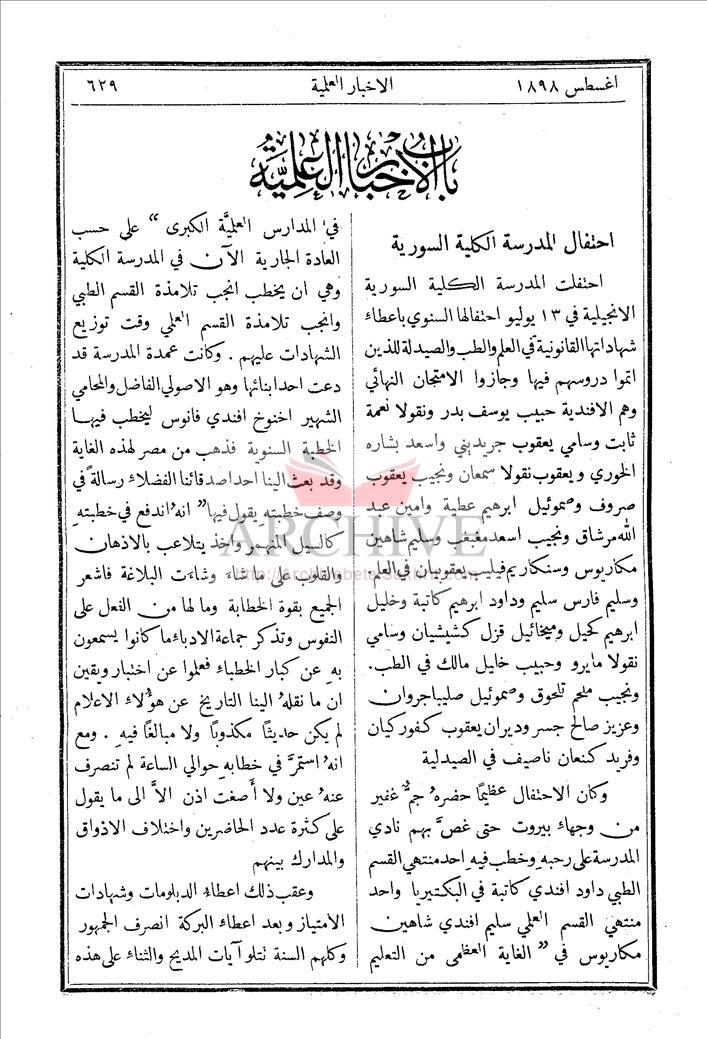 اغسطس ١٨٩٨
الاخبار العلمية
٦٢٩
باب الاخبار العلمية
احتفال المدرسة الكلية السورية
احتفلت المدرسة الكلية السورية
الانجيلية في ١٣ يوليو احتفالها السنوي باعطاء
شهاداتها القانونية في العلم والطب والصيدلة للذين
اتموا دروسهم فيها وجازوا الامتحان النهائي
وهم الافندية حبيب يوسف بدر ونقولا نعمة
ثابت وسامي يعقوب جريديني واسعد بشاره
الخوري ويعقوب نقولا سمعان ونجيب يعقوب
صروف وصموئيل ابرهيم عطية وامين عبد
الله مرشاق ونجيب اسعد مغبغب وسليم شاهين
مكاريوس وسنكاريم فيليب يعقوبيان في العلم.
وسليم فارس سليم وداود ابرهيم كاتبة وخليل
ابرهيم كحيل وميخائيل قزل كشيشيان وسامي
نقولا مايرو وحبيب خليل مالك في الطب.
ونجيب ملحم تلحوق وصموئيل صليباجروان
وعزيز صالح جسر وديران يعقوب كفوركيان
وفريد كنعان ناصيف في الصيدلية
وكان الاحتفال عظيمًا حضرهُ جمٌّ غفير
من وجهاء بيروت حتى غصَّ بهم نادي
المدرسة على رحبهِ وخطب فيهِ احد منتهي القسم
الطبي داود افندي كاتبة في البكتيريا واحد
منتهي القسم العلمي سليم افندي شاهين
مكاريوس في " الغاية العظمى من التعليم
في المدارس العلميَّة الكبرى " على حسب
العادة الجارية الآن في المدرسة الكلية
وهي ان يخطب انجب تلامذة القسم الطبي
وانجب تلامذة القسم العلمي وقت توزيع
الشهادات عليهم . وكانت عمدة المدرسة قد
دعت احد ابنائها وهو الاصولي الفاضل والمحامي
الشهير اخنوخ افندي فانوس ليخطب فيها
الخطبة السنوية فذهب من مصر لهذه الغاية
وقد بعث الينا احد اصدقائنا الفضلاء رسالةً في
وصف خطبتهِ يقول فيها " انهُ اندفع في خطبتهِ
كالسيل المنهمر واخذ يتلاعب بالاذهان
والقلوب على ما شاء وشاءت البلاغة فاشعر
الجميع بقوة الخطابة وما لها من الفعل على
النفوس وتذكر جماعة الادباء ما كانوا يسمعون
بهِ عن كبار الخطباء فعلموا عن اختبار ويقين
ان ما نقلهُ الينا التاريخ عن هؤلاء الاعلام
لم يكن حديثًا مكذوبًا ولا مبالغًا فيهِ . ومع
انهُ استمرَّ في خطابهِ حوالي الساعة لم تنصرف
عنهُ عين ولا أصغت اذن الاَّ الى ما يقول
على كثرة عدد الحاضرين واختلاف الاذواق
والمدارك بينهم
وعقب ذلك اعطاء الدبلومات وشهادات
الامتياز وبعد اعطاء البركة انصرف الجمهور
وكلهم السنة تتلو آيات المديح والثناء على هذه
ARCHIVE